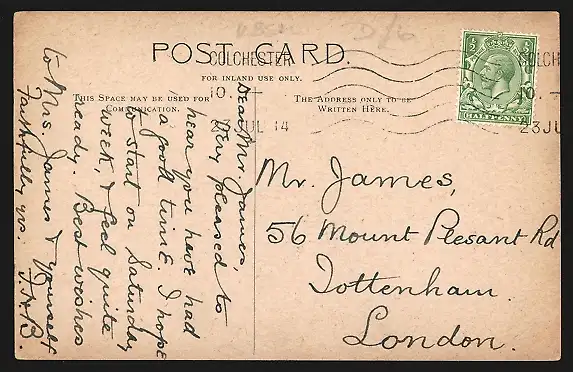 POST CARD.
FOR INLAND USE ONLY.
THIS SPACE MAY BE USED FOR
COMMUNICATION.
THE ADDRESS ONLY TO BE
WRITTEN HERE.
COLCHESTER
10. —
JUL 14
COLCH
10. —
23 JU
½
½
HALFPENNY
D/6
Dear Mr. James,
Very pleased to
hear you have had
a good time. I hope
to start on Saturday
week, & feel quite
ready. Best wishes
to Mrs. James & yourself
Faithfully yrs.
Mr. James,
56 Mount Plesant Rd
Tottenham.
London.